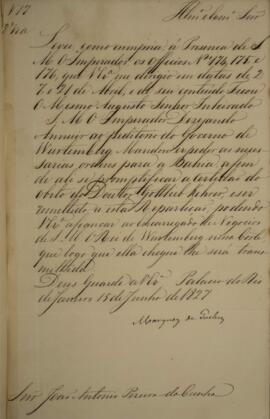 Nº 17
2ª Via
Illmo e Exmo Snr
Levei, como cumpria, á Presença de S.
M. O Imperador os Officios Nº 174, 175 e
176, que V Exª me dirigio em datas de 27
e 21 de Abril, e do seu conteudo ficou
O Mesmo Augusto Senhor Inteirado
S. M. O Imperador Dezejando
Annuir ao peditorio do Governo de
Wurtemberg Mandou expedir as neces-
sarias ordens para a Bahia a fim
de ali se promptificar a certidão do
obito do Doutor Gottlieb, e ser
remettido a esta Repartição, podendo
V Exª afiançar ao encarregado de Negocios
de S. M. O Rei de Wurtemberg nessa Corte
que logo que ella chegue lhe será trans-
mittida.
Deos Guarde a V Exª Palacio do Rio
de Janeiro 15 de Junho de 1827
Marquez de Queluz
Snr João Antonio Pereira da Cunha